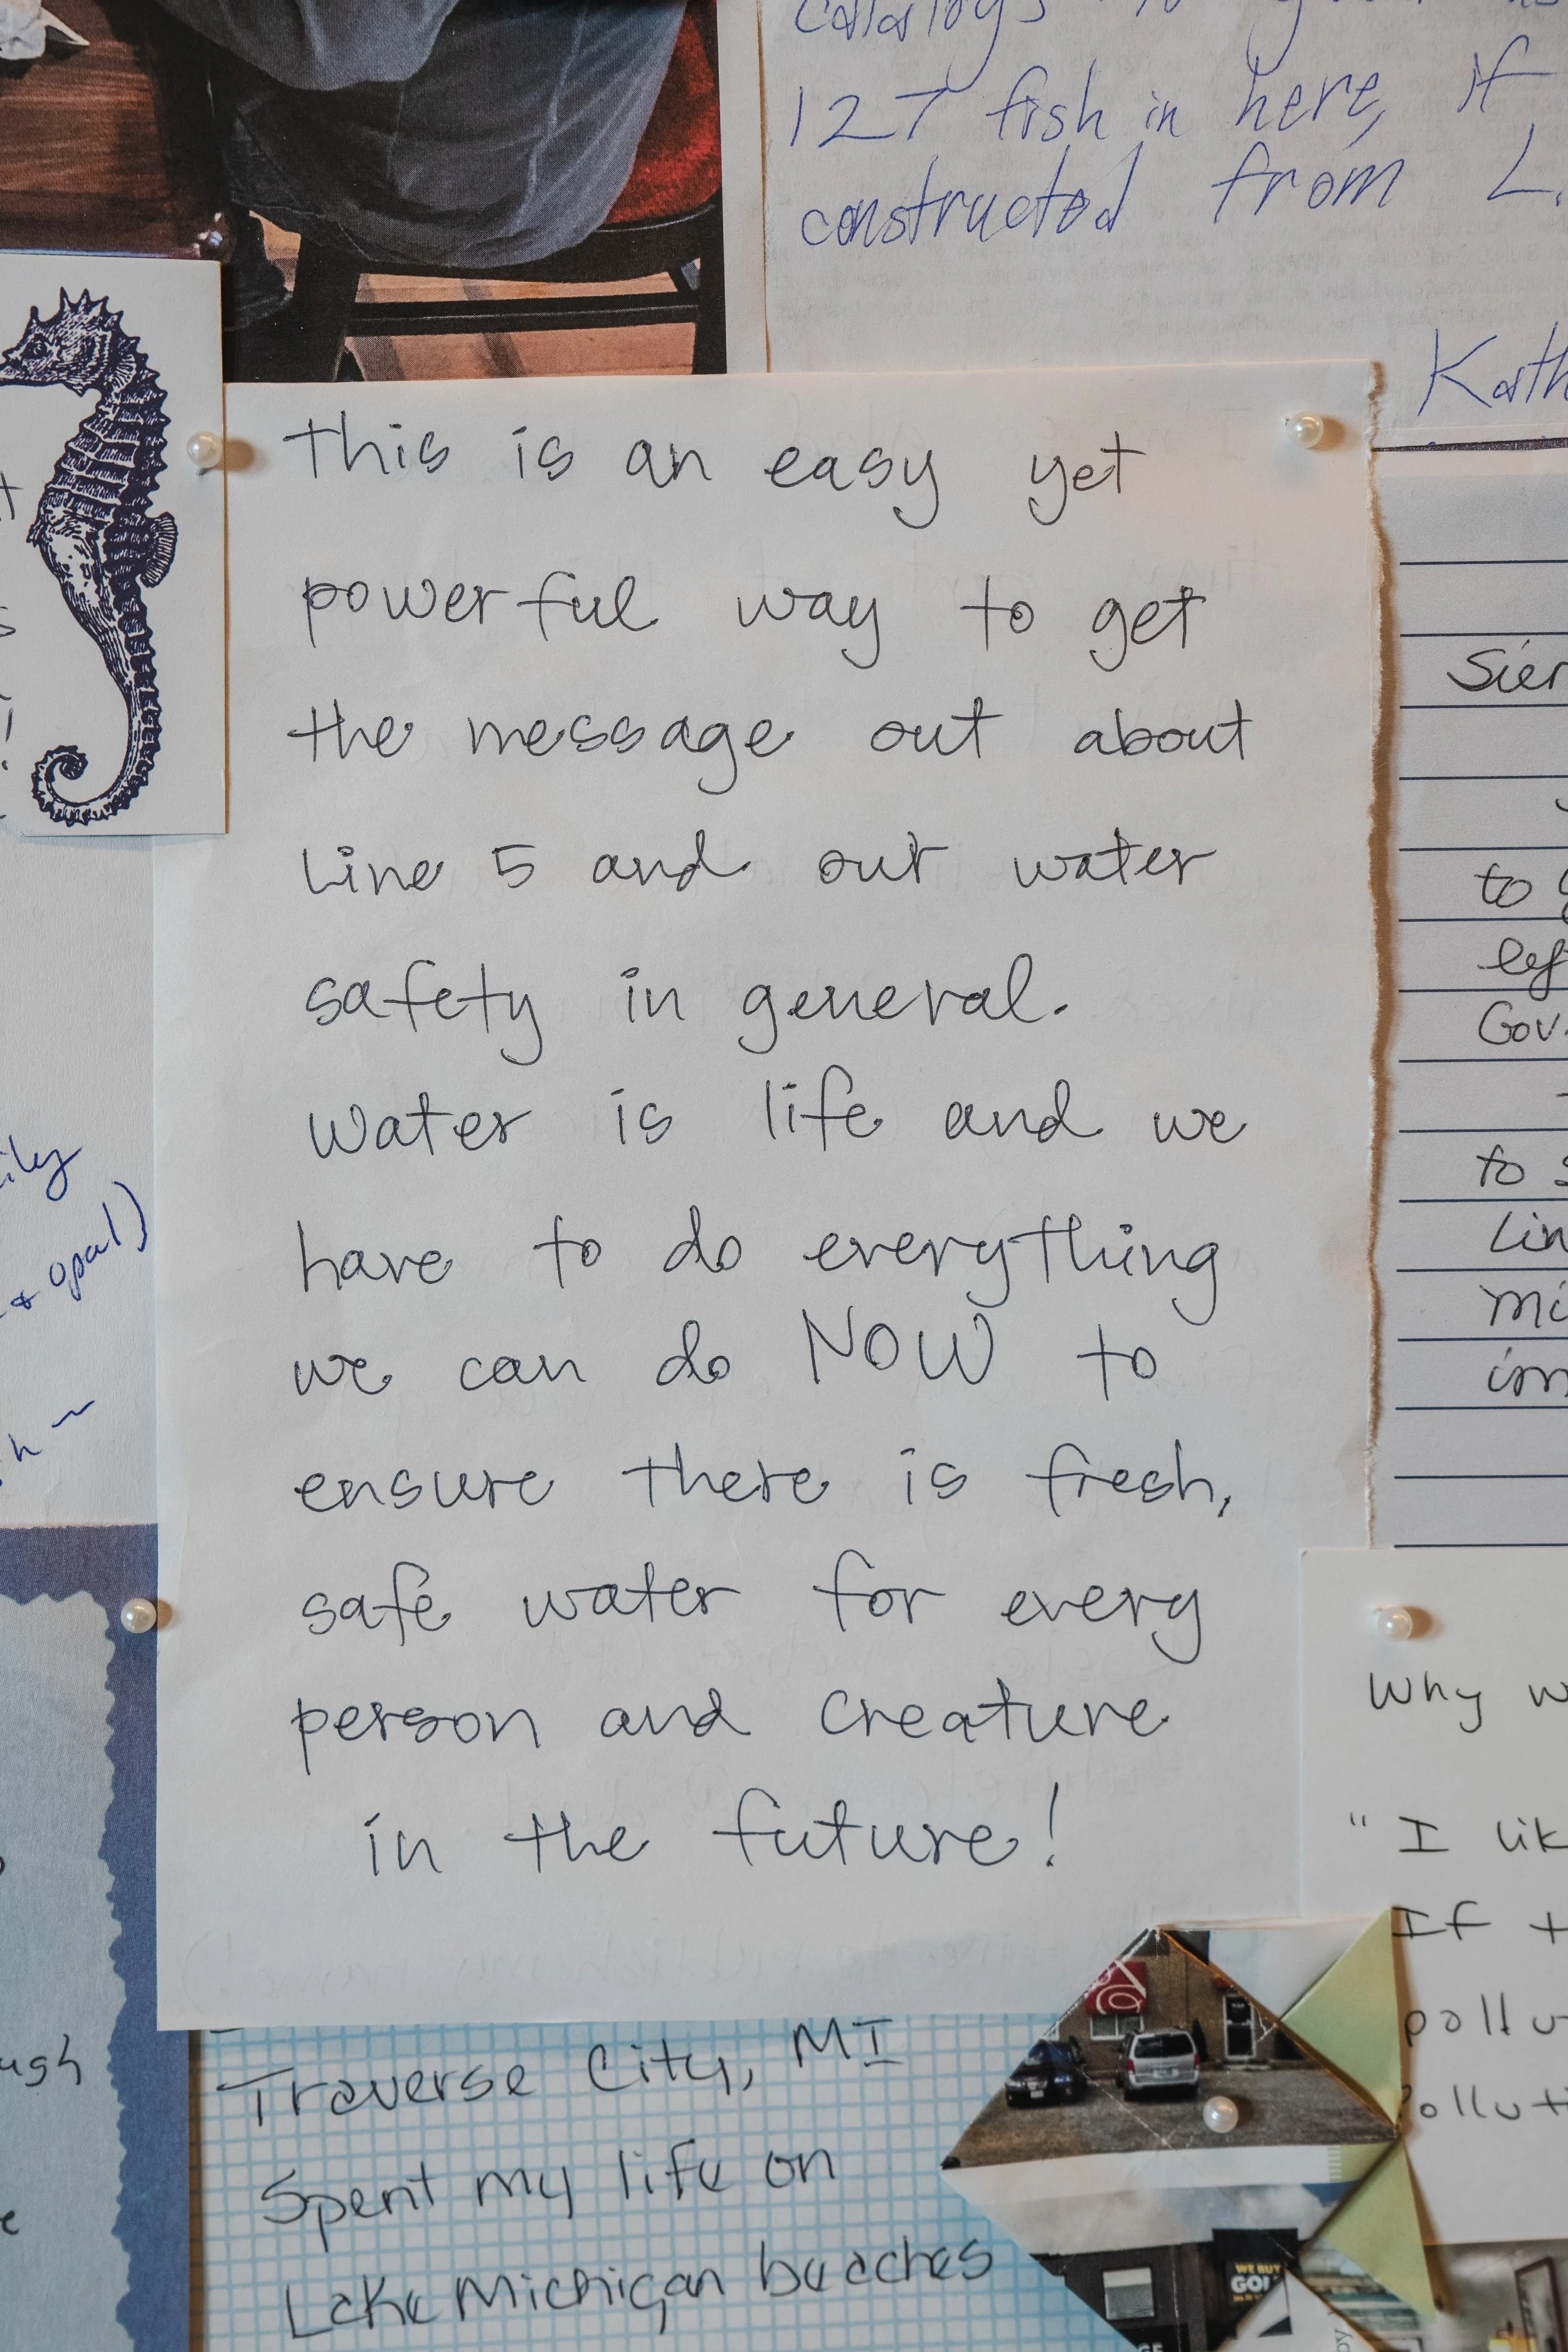 127 fish in here, if
constructed from L.
This is an easy yet
powerful way to get
the message out about
Line 5 and our water
safety in general.
Water is life and we
have to do everything
we can do NOW to
ensure there is fresh,
safe water for every
person and creature
in the future!
to
Gov.
to
opal)
Why
"I
If
Traverse City, MI
Spent my life on
Lake Michigan beaches
WE BUY